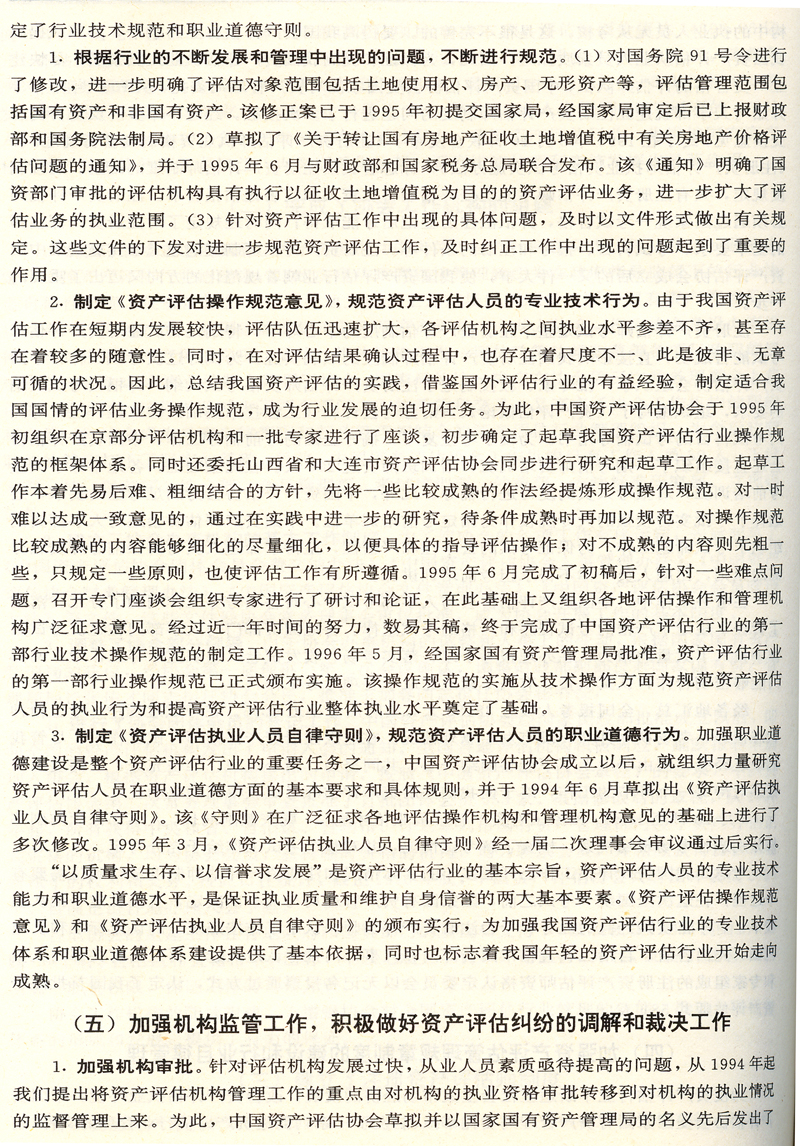 定了行业技术规范和职业道德守则。
1. 根据行业的不断发展和管理中出现的问题，不断进行规范。（1）对国务院 91 号令进行
了修改，进一步明确了评估对象范围包括土地使用权、房产、无形资产等，评估管理范围包
括国有资产和非国有资产。该修正案已于 1995 年初提交国家局，经国家局审定后已上报财政
部和国务院法制局。（2）草拟了《关于转让国有房地产征收土地增值税中有关房地产价格评
估问题的通知》，并于 1995 年 6 月与财政部和国家税务总局联合发布。该《通知》明确了国
资部门审批的评估机构具有执行以征收土地增值税为目的的资产评估业务，进一步扩大了评
估业务的执业范围。（3）针对资产评估工作中出现的具体问题，及时以文件形式做出有关规
定。这些文件的下发对进一步规范资产评估工作，及时纠正工作中出现的问题起到了重要的
作用。
2. 制定《资产评估操作规范意见》，规范资产评估人员的专业技术行为。由于我国资产评
估工作在短期内发展较快，评估队伍迅速扩大，各评估机构之间执业水平参差不齐，甚至存
在着较多的随意性。同时，在对评估结果确认过程中，也存在着尺度不一、此是彼非、无章
可循的状况。因此，总结我国资产评估的实践，借鉴国外评估行业的有益经验，制定适合我
国国情的评估业务操作规范，成为行业发展的迫切任务。为此，中国资产评估协会于 1995 年
初组织在京部分评估机构和一批专家进行了座谈，初步确定了起草我国资产评估行业操作规
范的框架体系。同时还委托山西省和大连市资产评估协会同步进行研究和起草工作。起草工
作本着先易后难、粗细结合的方针，先将一些比较成熟的作法经提炼形成操作规范。对一时
难以达成一致意见的，通过在实践中进一步的研究，待条件成熟时再加以规范。对操作规范
比较成熟的内容能够细化的尽量细化，以便具体的指导评估操作；对不成熟的内容则先粗一
些，只规定一些原则，也使评估工作有所遵循。1995 年 6 月完成了初稿后，针对一些难点问
题，召开专门座谈会组织专家进行了研讨和论证，在此基础上又组织各地评估操作和管理机
构广泛征求意见。经过近一年时间的努力，数易其稿，终于完成了中国资产评估行业的第一
部行业技术操作规范的制定工作。1996 年 5 月，经国家国有资产管理局批准，资产评估行业
的第一部行业操作规范已正式颁布实施。该操作规范的实施从技术操作方面为规范资产评估
人员的执业行为和提高资产评估行业整体执业水平奠定了基础。
3. 制定《资产评估执业人员自律守则》，规范资产评估人员的职业道德行为。加强职业道
德建设是整个资产评估行业的重要任务之一，中国资产评估协会成立以后，就组织力量研究
资产评估人员在职业道德方面的基本要求和具体规则，并于 1994 年 6 月草拟出《资产评估执
业人员自律守则》。该《守则》在广泛征求各地评估操作机构和管理机构意见的基础上进行了
多次修改。1995 年 3 月，《资产评估执业人员自律守则》经一届二次理事会审议通过后实行。
“以质量求生存、以信誉求发展”是资产评估行业的基本宗旨，资产评估人员的专业技术
能力和职业道德水平，是保证执业质量和维护自身信誉的两大基本要素。《资产评估操作规范
意见》和《资产评估执业人员自律守则》的颁布实行，为加强我国资产评估行业的专业技术
体系和职业道德体系建设提供了基本依据，同时也标志着我国年轻的资产评估行业开始走向
成熟。
（五）加强机构监管工作，积极做好资产评估纠纷的调解和裁决工作
1. 加强机构审批。针对评估机构发展过快，从业人员素质亟待提高的问题，从 1994 年起
我们提出将资产评估机构管理工作的重点由对机构的执业资格审批转移到对机构的执业情况
的监督管理上来。为此，中国资产评估协会草拟并以国家国有资产管理局的名义先后发出了